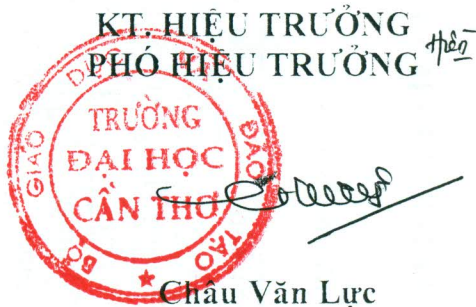 KT. HIỆU TRƯỞNG
PHÓ HIỆU TRƯỞNG
BỘ GIÁO DỤC VÀ ĐÀO TẠO
TRƯỜNG
ĐẠI HỌC
CẦN THƠ
Châu Văn Lực